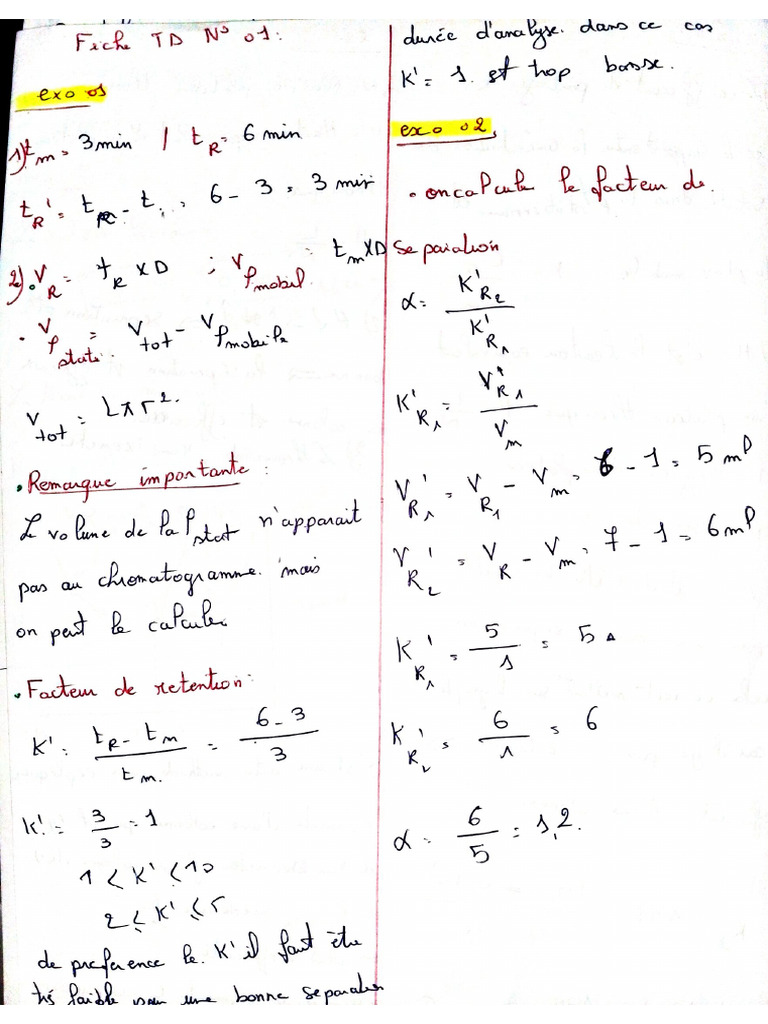 Fiche TD N° 01:
exo 01
1) tm = 3min / tR = 6 min
tR' = tR - ti = 6 - 3 = 3 min
2). VR = tR x D ; VPmobil = tm x D
. VPstati. = Vtot - VPmobile
Vtot = Lπr².
. Remarque importante :
Le volume de la Pstat n'apparait
pas au chromatogramme. mais
on peut le calculer
. Facteur de retention:
K' = tR - tm / tm. = 6 - 3 / 3
K' = 3/3 = 1
1 < K' < 10
2 ≤ K' ≤ 5
de preference le K' il faut être
très faible pour une bonne separation
durée d'analyse. dans ce cas
K' = 1. est trop basse.
exo 02.
. on calcule le facteur de
separation
α = K'R2 / K'R1
K'R1 = V'R1 / Vm
VR1' = VR1 - Vm = 6 - 1 = 5 ml
VR2' = VR - Vm = 7 - 1 = 6 ml
KR1' = 5/1 = 5
KR2' = 6/1 = 6
α = 6/5 = 1,2.